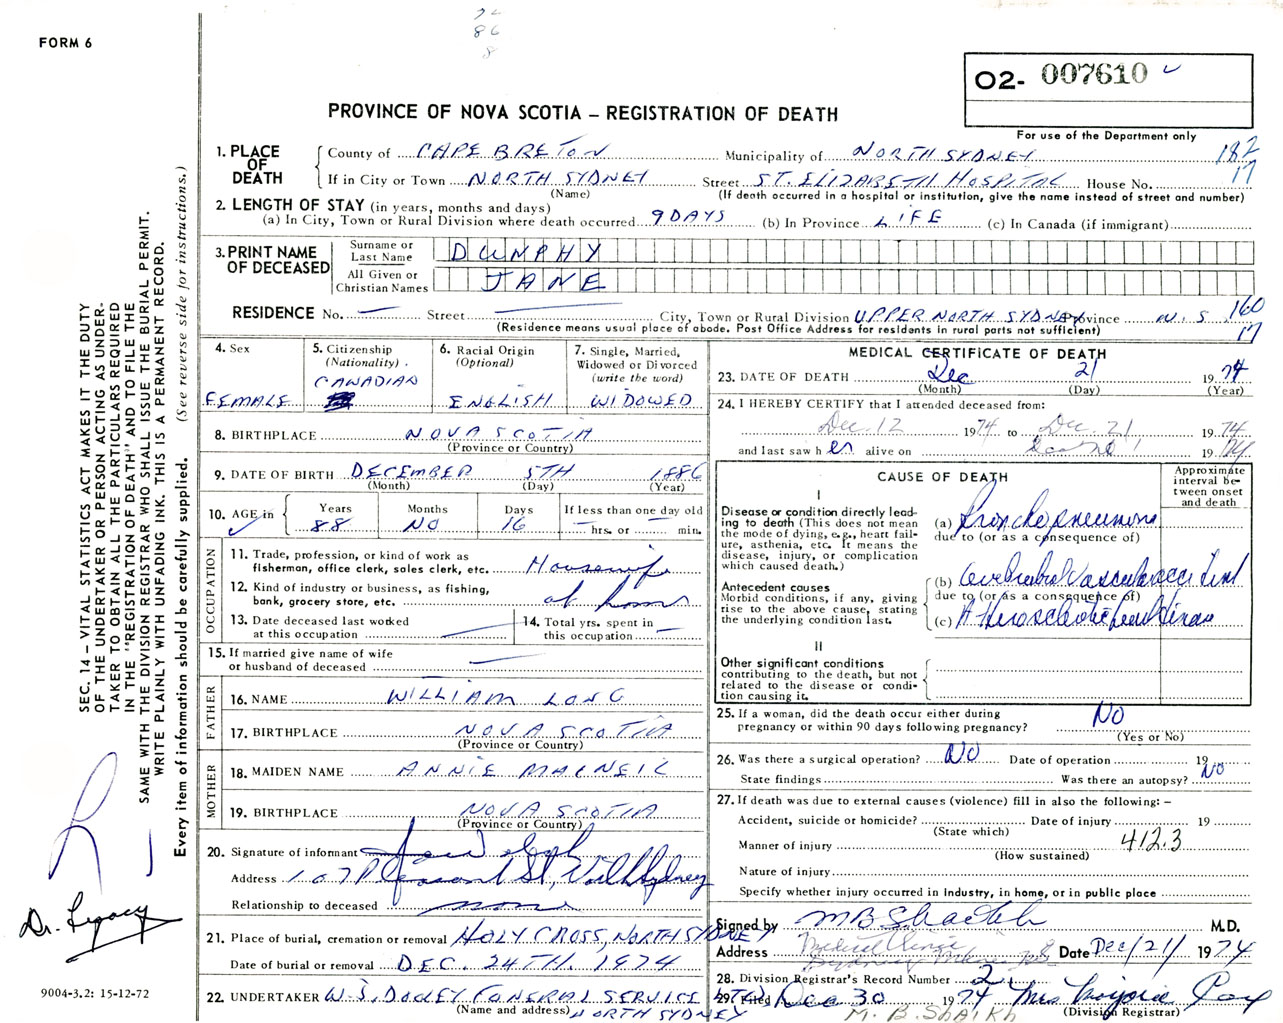 72
86
8
FORM 6
O2- 007610
For use of the Department only
PROVINCE OF NOVA SCOTIA – REGISTRATION OF DEATH
1. PLACE OF DEATH
County of CAPE BRETON Municipality of NORTH SYDNEY 182
If in City or Town NORTH SYDNEY Street ST. ELIZABETH HOSPITAL House No. 17
(Name) (If death occurred in a hospital or institution, give the name instead of street and number)
2. LENGTH OF STAY (in years, months and days)
(a) In City, Town or Rural Division where death occurred 9 DAYS (b) In Province LIFE (c) In Canada (if immigrant)
3. PRINT NAME OF DECEASED
Surname or Last Name DUNPHY
All Given or Christian Names JANE
RESIDENCE No. — Street — City, Town or Rural Division UPPER NORTH SYDNEY Province N.S. 160
17
(Residence means usual place of abode. Post Office Address for residents in rural parts not sufficient)
4. Sex
FEMALE
5. Citizenship
(Nationality)
CANADIAN
6. Racial Origin
(Optional)
ENGLISH
7. Single, Married,
Widowed or Divorced
(write the word)
WIDOWED
8. BIRTHPLACE NOVA SCOTIA
(Province or Country)
9. DATE OF BIRTH DECEMBER 5TH 1886
(Month) (Day) (Year)
10. AGE in
Years Months Days If less than one day old
88 NO 16 — hrs. or — min.
OCCUPATION
11. Trade, profession, or kind of work as
fisherman, office clerk, sales clerk, etc. Housewife
12. Kind of industry or business, as fishing,
bank, grocery store, etc. at home
13. Date deceased last worked
at this occupation —
14. Total yrs. spent in
this occupation —
15. If married give name of wife
or husband of deceased —
FATHER
16. NAME WILLIAM LONG
17. BIRTHPLACE NOVA SCOTIA
(Province or Country)
MOTHER
18. MAIDEN NAME ANNIE MACNEIL
19. BIRTHPLACE NOVA SCOTIA
(Province or Country)
20. Signature of informant
Address 107 Pleasant St, North Sydney
Relationship to deceased none
21. Place of burial, cremation or removal HOLY CROSS, NORTH SYDNEY
Date of burial or removal DEC. 24TH. 1974
22. UNDERTAKER W.J. DOOLEY FUNERAL SERVICE LTD
(Name and address) NORTH SYDNEY
MEDICAL CERTIFICATE OF DEATH
23. DATE OF DEATH Dec 21 1974
(Month) (Day) (Year)
24. I HEREBY CERTIFY that I attended deceased from:
Dec. 12 1974 to Dec. 21 1974
and last saw h er alive on Dec 1974
CAUSE OF DEATH
Approximate
interval be-
tween onset
and death
I
Disease or condition directly lead-
ing to death (This does not mean
the mode of dying, e.g., heart fail-
ure, asthenia, etc. It means the
disease, injury, or complication
which caused death.)
(a) Bronchopneumonia
due to (or as a consequence of)
Antecedent causes
Morbid conditions, if any, giving
rise to the above cause, stating
the underlying condition last.
(b) Cerebral Vascular accident
due to (or as a consequence of)
(c) Atherosclerotic heart disease
II
Other significant conditions
contributing to the death, but not
related to the disease or condi-
tion causing it.
25. If a woman, did the death occur either during
pregnancy or within 90 days following pregnancy? NO
(Yes or No)
26. Was there a surgical operation? NO Date of operation 19
State findings Was there an autopsy? NO
27. If death was due to external causes (violence) fill in also the following: –
Accident, suicide or homicide? Date of injury 19
(State which)
Manner of injury 412.3
(How sustained)
Nature of injury
Specify whether injury occurred in industry, in home, or in public place
Signed by M B Shaikh M.D.
Address Medical Clinic Sydney Mines N.S. Date Dec/21/ 1974
28. Division Registrar's Record Number 2
29. Filed Dec 30 1974 Mrs Marjorie Cox
M. B. Shaikh (Division Registrar)
SEC. 14 – VITAL STATISTICS ACT MAKES IT THE DUTY
OF THE UNDERTAKER OR PERSON ACTING AS UNDER-
TAKER TO OBTAIN ALL THE PARTICULARS REQUIRED
IN THE "REGISTRATION OF DEATH" AND TO FILE THE
SAME WITH THE DIVISION REGISTRAR WHO SHALL ISSUE THE BURIAL PERMIT.
WRITE PLAINLY WITH UNFADING INK. THIS IS A PERMANENT RECORD.
Every item of information should be carefully supplied. (See reverse side for instructions.)
Dr. Legacy
9004-3.2: 15-12-72